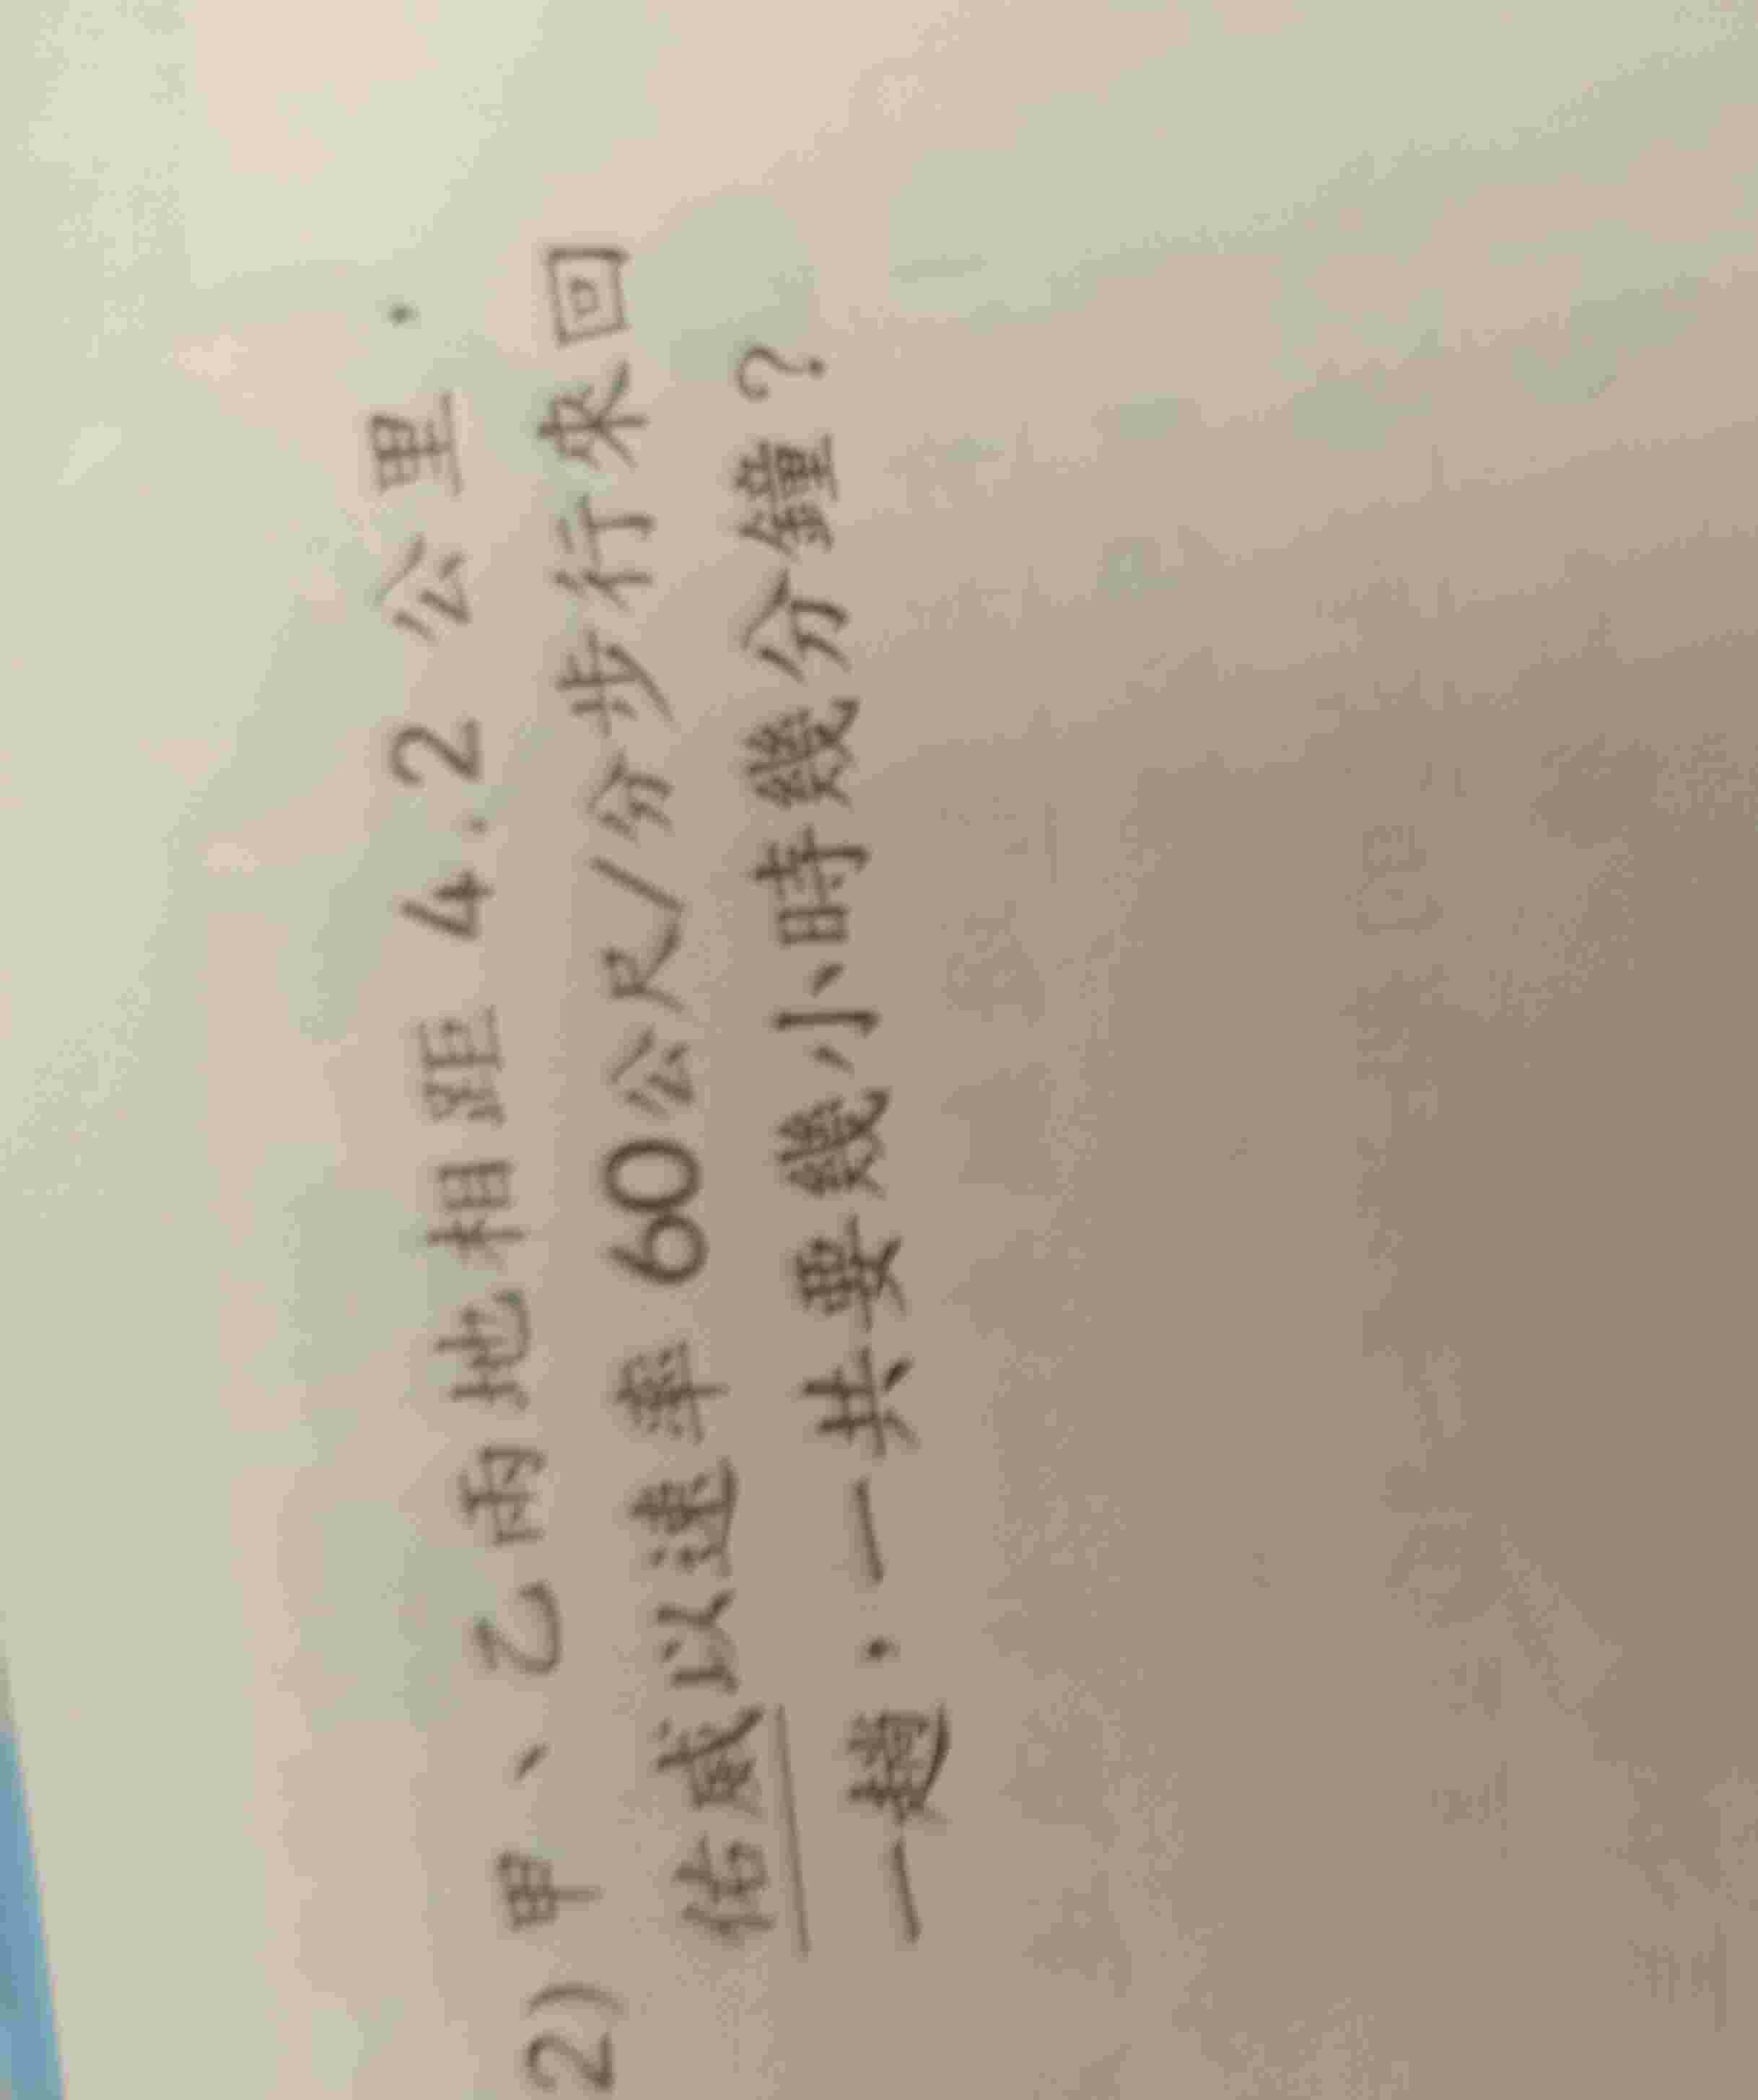 2) 甲、乙兩地相距 4.2 公里．
佑威以速率 60公尺/分步行來回
一趟．一共要幾小時幾分鐘？